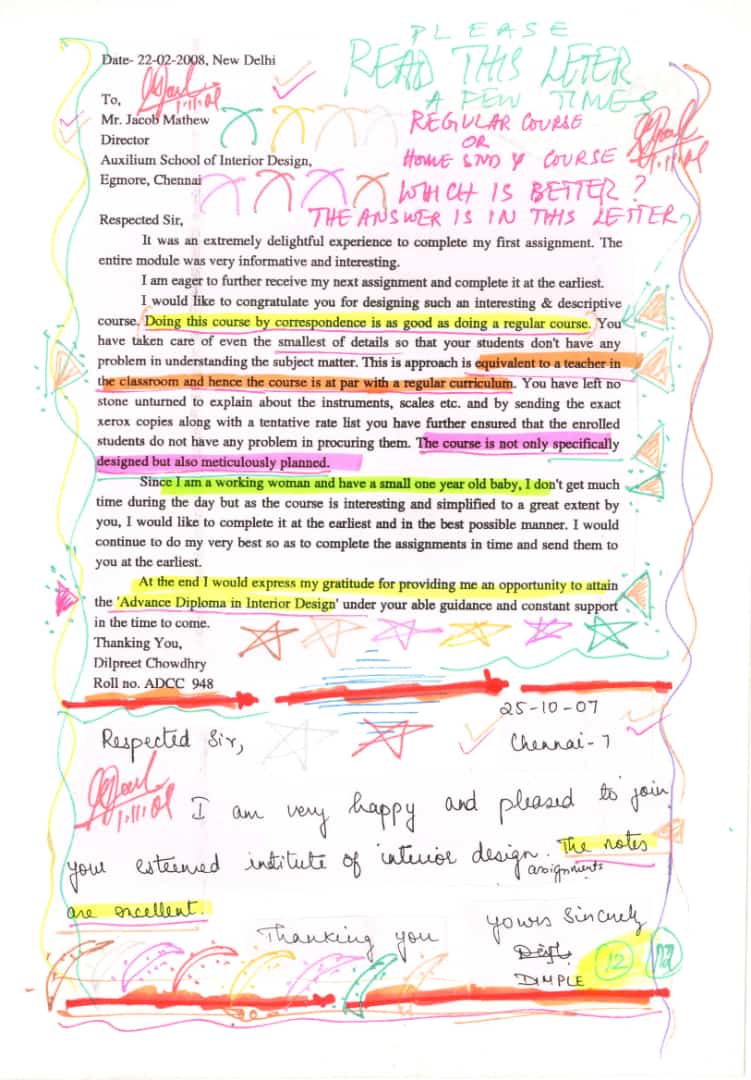 PLEASE
READ THIS LETER
A FEW TIMES
Date- 22-02-2008, New Delhi
To,
Mr. Jacob Mathew
Director
Auxilium School of Interior Design,
Egmore, Chennai
REGULAR COURSE
OR
HOME STUDY COURSE
WHICH IS BETTER?
THE ANSWER IS IN THIS LETTER
Respected Sir,
It was an extremely delightful experience to complete my first assignment. The
entire module was very informative and interesting.
I am eager to further receive my next assignment and complete it at the earliest.
I would like to congratulate you for designing such an interesting & descriptive
course. Doing this course by correspondence is as good as doing a regular course. You
have taken care of even the smallest of details so that your students don't have any
problem in understanding the subject matter. This is approach is equivalent to a teacher in
the classroom and hence the course is at par with a regular curriculum. You have left no
stone unturned to explain about the instruments, scales etc. and by sending the exact
xerox copies along with a tentative rate list you have further ensured that the enrolled
students do not have any problem in procuring them. The course is not only specifically
designed but also meticulously planned.
Since I am a working woman and have a small one year old baby, I don't get much
time during the day but as the course is interesting and simplified to a great extent by
you, I would like to complete it at the earliest and in the best possible manner. I would
continue to do my very best so as to complete the assignments in time and send them to
you at the earliest.
At the end I would express my gratitude for providing me an opportunity to attain
the 'Advance Diploma in Interior Design' under your able guidance and constant support
in the time to come.
Thanking You,
Dilpreet Chowdhry
Roll no. ADCC 948
25-10-07
Respected Sir,
Chennai-7
I am very happy and pleased to join
your esteemed institute of interior design. The notes
assignments
are excellent.
Thanking you
yours Sincerely
DIMPLE
12